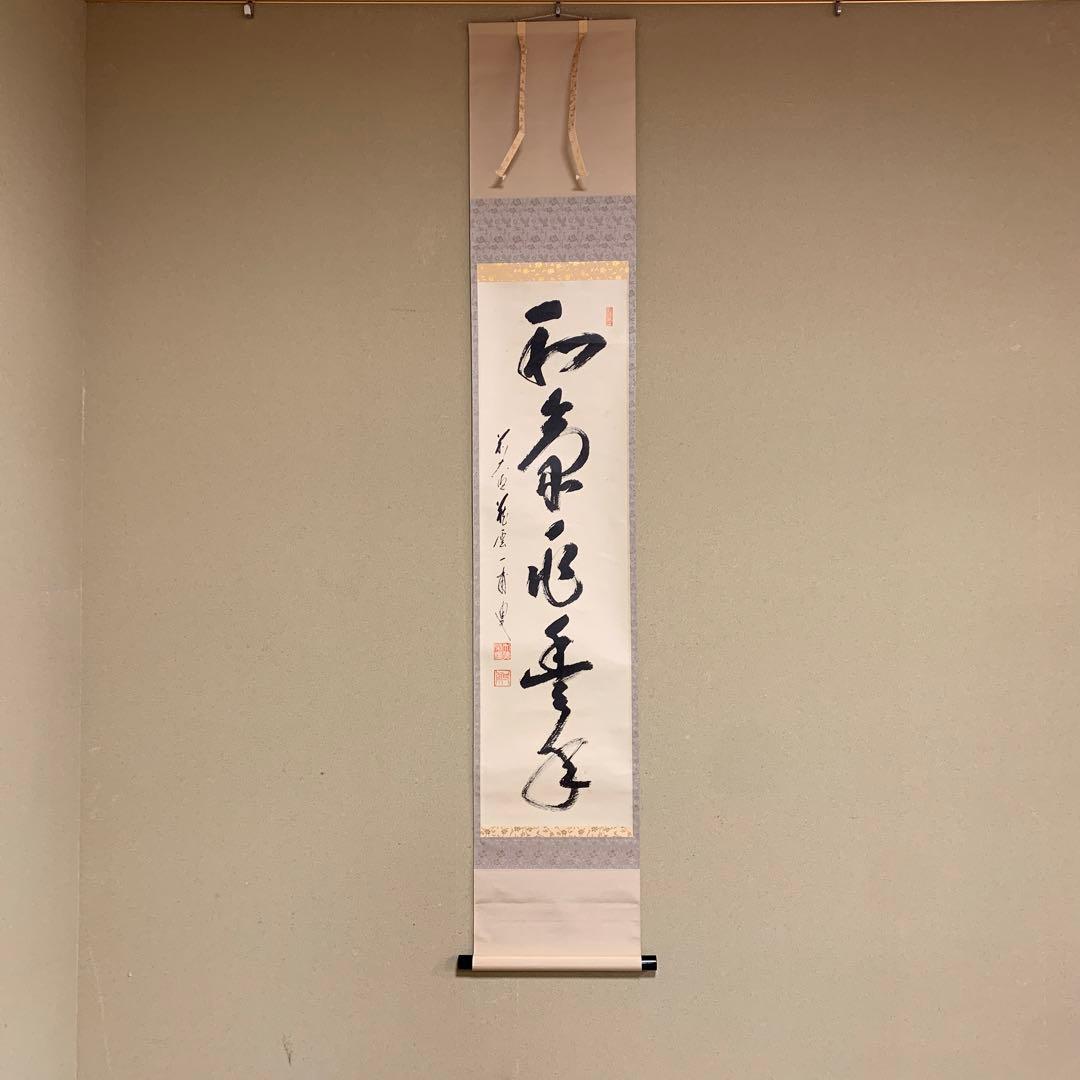 和氣兆豊年
前大徳 雲一甫叟